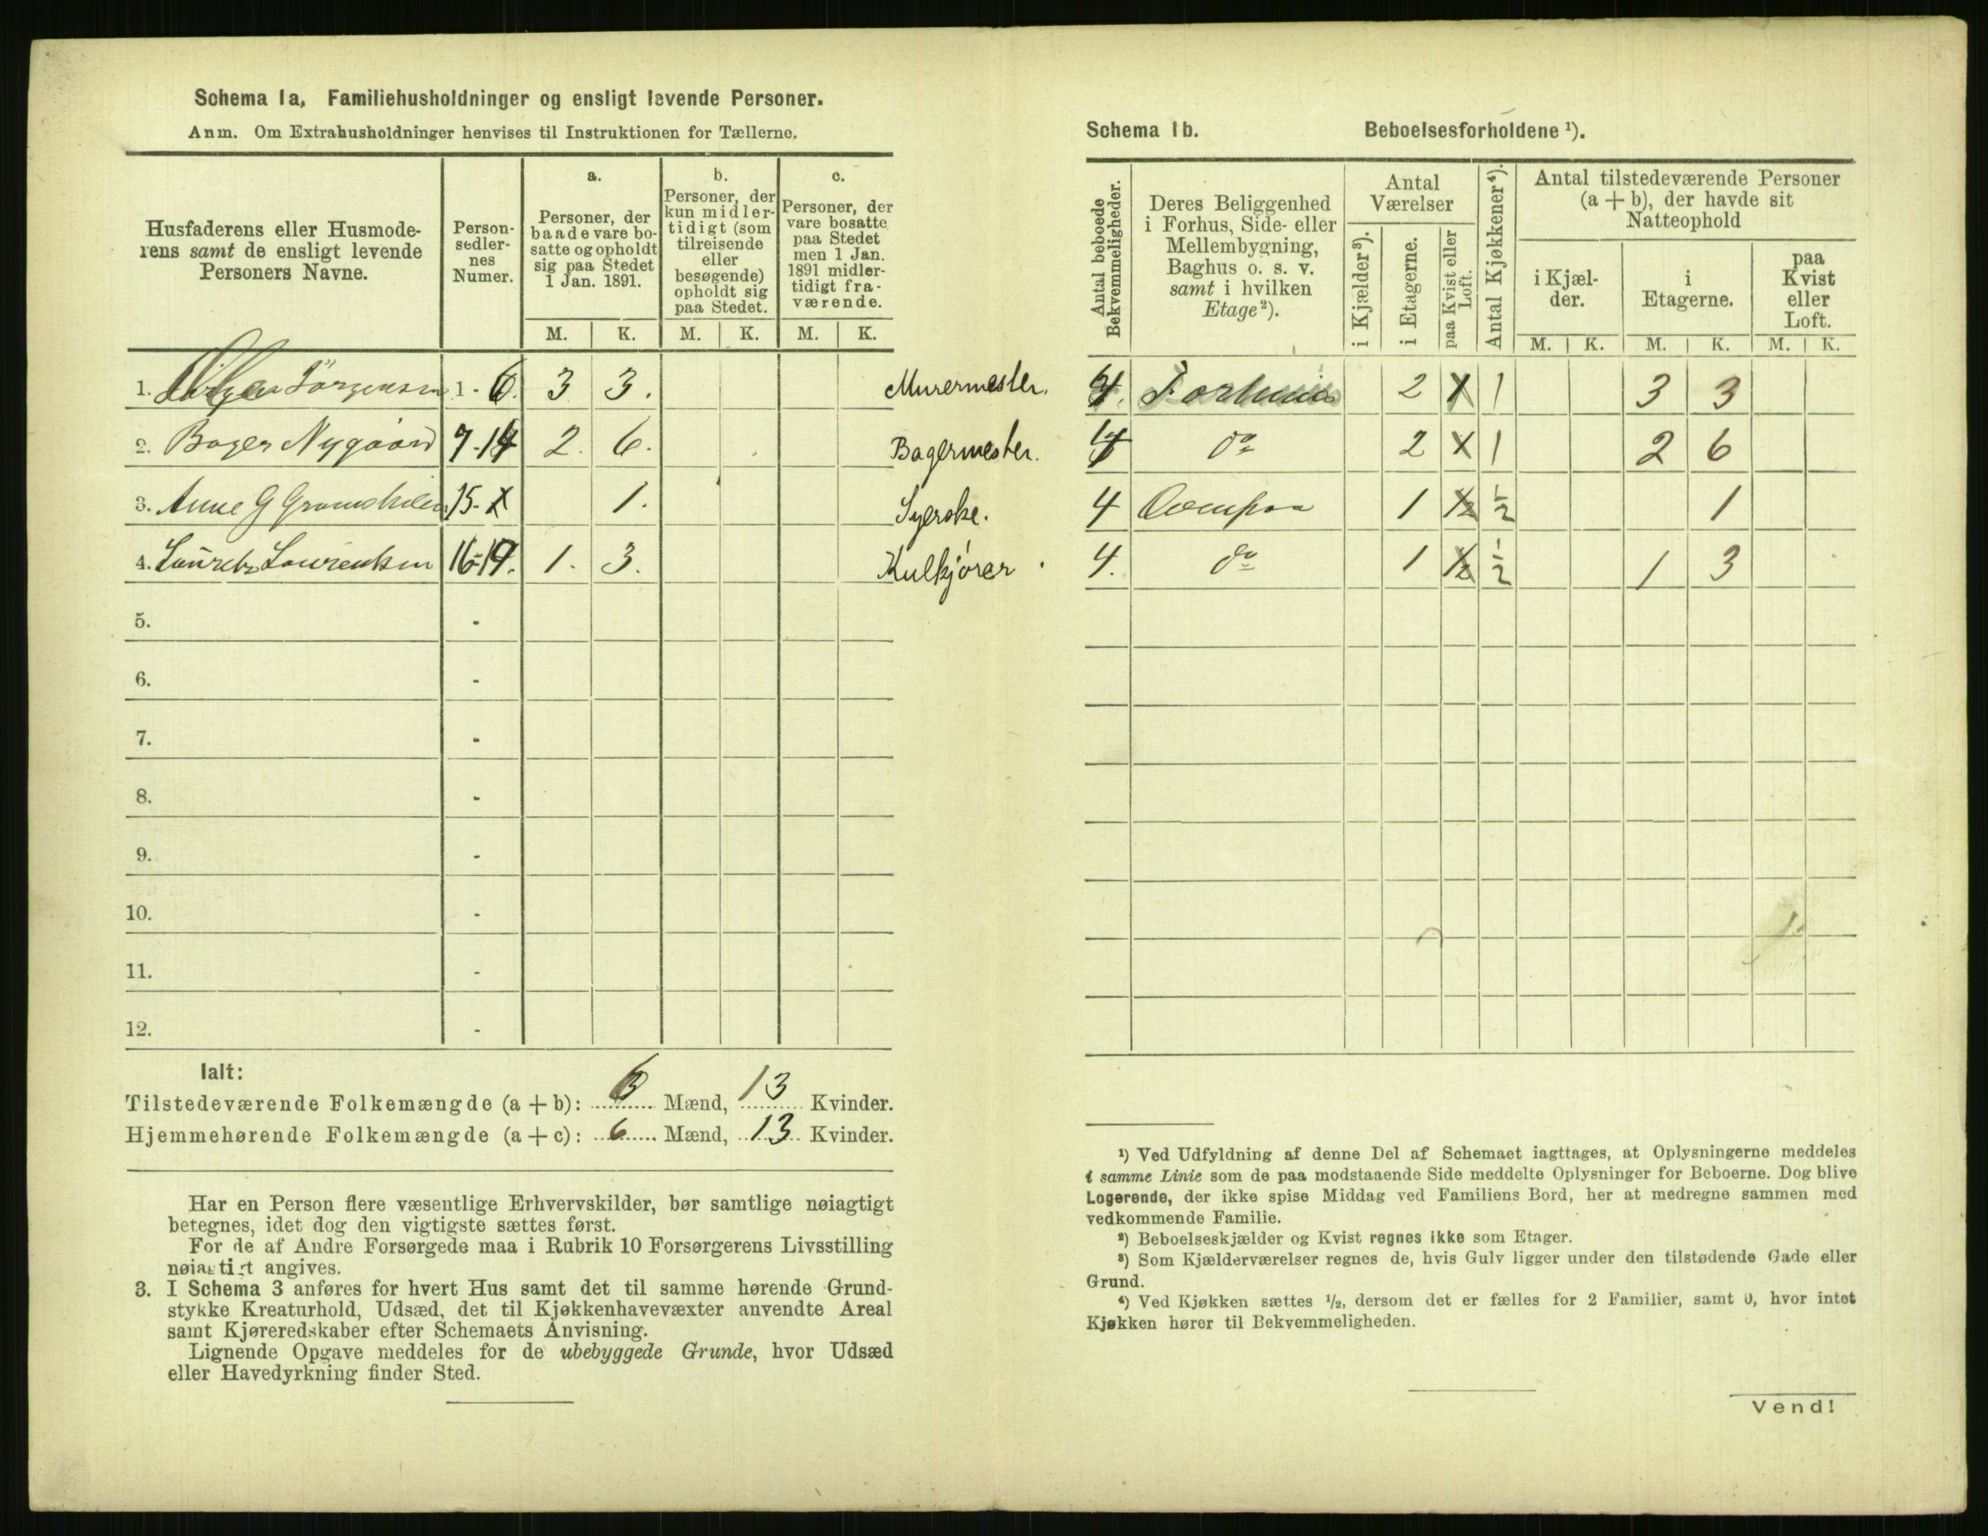 Schema 1a. Familiehusholdninger og ensligt levende Personer.
Anm. Om Extrahusholdninger henvises til Instruktionen for Tællerne.
Husfaderens eller Husmode-
rens samt de ensligt levende
Personers Navne.
Person-
sedler-
nes
Numer.
a.
Personer, der
baade vare bo-
satte og opholdt
sig paa Stedet
1 Jan. 1891.
b.
Personer, der
kun midler-
tidigt (som
tilreisende
eller
besøgende)
opholdt sig
paa Stedet.
c.
Personer, der
vare bosatte
paa Stedet
men 1 Jan.
1891 midler-
tidigt fra-
værende.
M. K. M. K. M. K.
1. Jörgensen 1 - 6. 3 3. Murermester.
2. Bager Nygaard 7 - 14 2. 6. Bagermester.
3. Anne G 15 - 1. Syerske.
4. Laurentsen 16 - 19. 1. 3. Kulkjører
5. -
6. -
7. -
8. -
9. -
10. -
11. -
12. -
Ialt:
Tilstedeværende Folkemængde (a + b): 6 Mænd, 13 Kvinder.
Hjemmehørende Folkemængde (a + c): 6 Mænd, 13 Kvinder.
Har en Person flere væsentlige Erhvervskilder, bør samtlige nøiagtigt
betegnes, idet dog den vigtigste sættes først.
For de af Andre Forsørgede maa i Rubrik 10 Forsørgerens Livsstilling
nøiagtigt angives.
3. I Schema 3 anføres for hvert Hus samt det til samme hørende Grund-
stykke Kreaturhold, Udsæd, det til Kjøkkenhavevæxter anvendte Areal
samt Kjøreredskaber efter Schemaets Anvisning.
Lignende Opgave meddeles for de ubebyggede Grunde, hvor Udsæd
eller Havedyrkning finder Sted.
Schema 1b. Beboelsesforholdene ¹).
Antal beboede
Bekvemmeligheder.
Deres Beliggenhed
i Forhus, Side- eller
Mellembygning,
Baghus o. s. v.
samt i hvilken
Etage²).
Antal
Værelser
i Kjælder³).
i Etagerne.
paa Kvist eller
Loft.
Antal Kjøkkener⁴).
Antal tilstedeværende Personer
(a + b), der havde sit
Natteophold
i Kjæl-
der.
i
Etagerne.
paa
Kvist
eller
Loft.
M. K. M. K. M. K.
Forhus 2 1 3 3
do 2 1 2 6
4 Ovenpaa 1 ½ 1
4. do 1 ½ 1 3
¹) Ved Udfyldning af denne Del af Schemaet iagttages, at Oplysningerne meddeles
i samme Linie som de paa modstaaende Side meddelte Oplysninger for Beboerne. Dog blive
Logerende, der ikke spise Middag ved Familiens Bord, her at medregne sammen med
vedkommende Familie.
²) Beboelseskjælder og Kvist regnes ikke som Etager.
³) Som Kjælderværelser regnes de, hvis Gulv ligger under den tilstødende Gade eller
Grund.
⁴) Ved Kjøkken sættes ½, dersom det er fælles for 2 Familier, samt 0, hvor intet
Kjøkken hører til Bekvemmeligheden.
Vend!